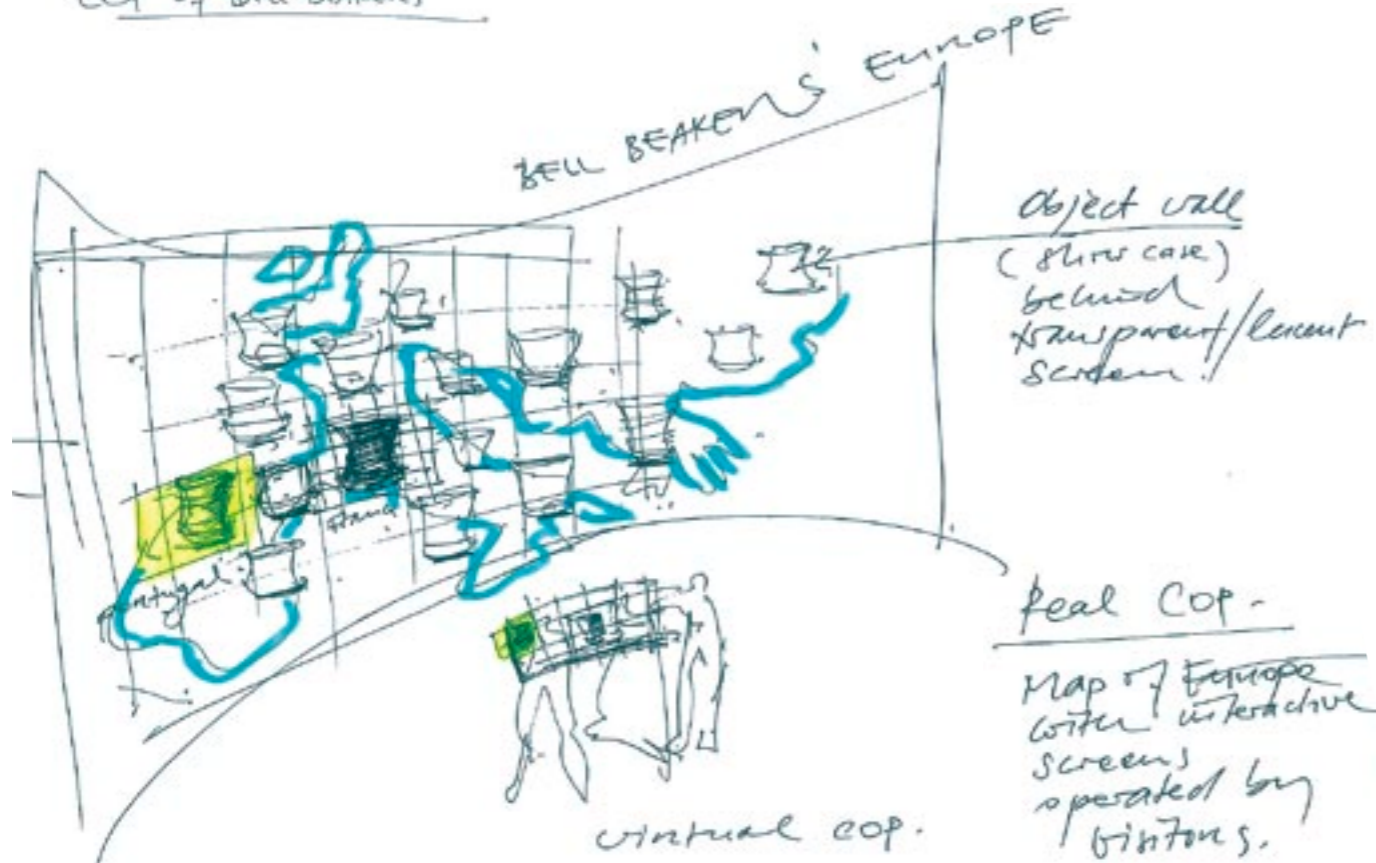 BELL BEAKERS' EUROPE
Object wall
(show case)
behind
transparent/
screen!
Portugal
Real COP.
Map of Europe
with interactive
screens
operated by
visitors.
virtual COP.